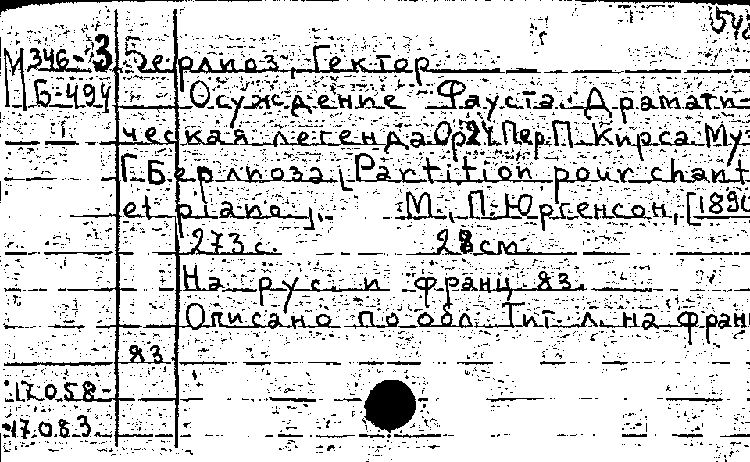 548
М 346-3 Берлиоз, Гектор
Б-494 Осуждение Фауста. Драмати-
ческая легенда Ор 24 Пер. П. Кирса. Му-
Г. Берлиоза [Partition pour chant
et piano]. М., П. Юргенсон, [1890
273 с. 28 см
На рус. и франц. яз.
Описано по обл. Тит. л. на франц
яз.
17.058-
17.083.